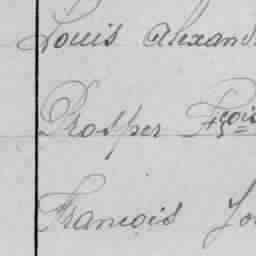 Louis Alexand
Prosper Fçois
François Jo